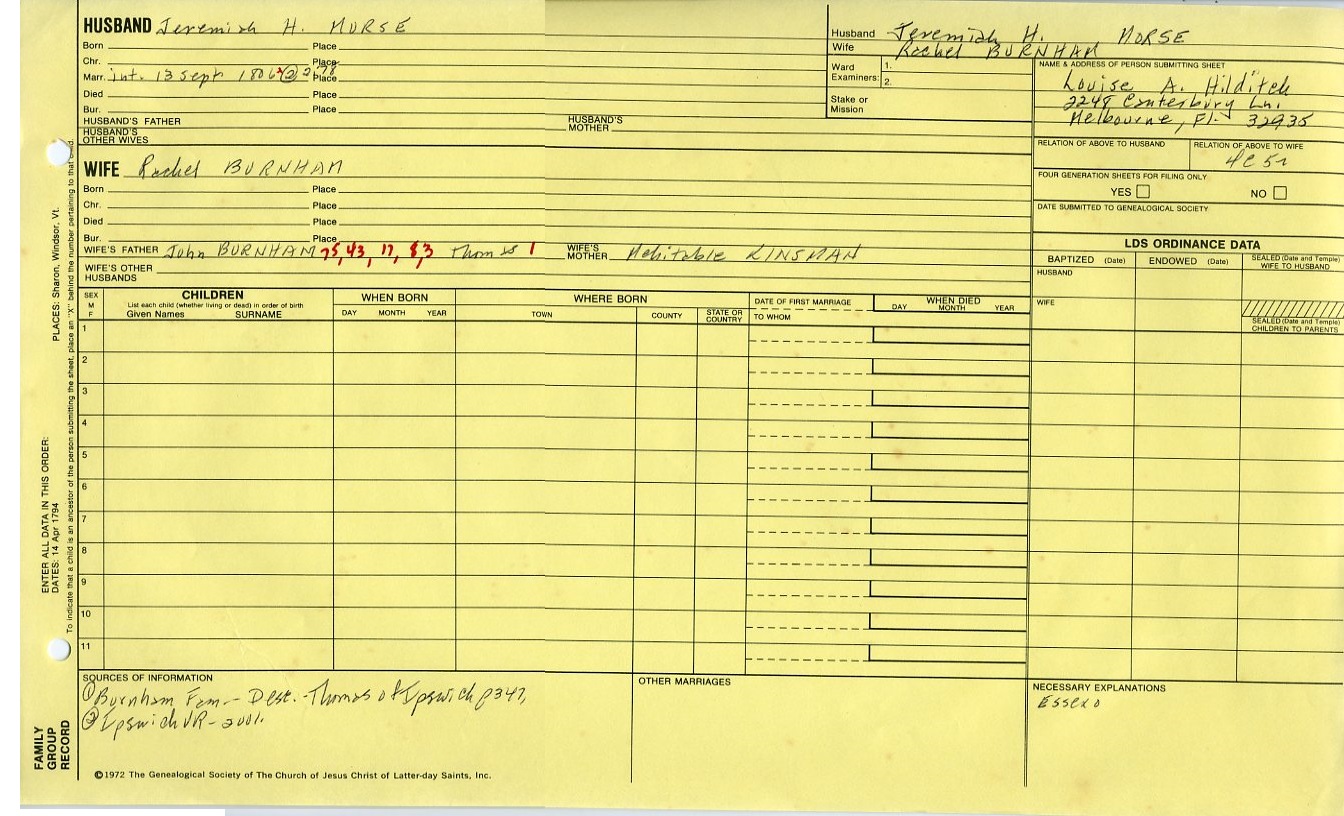 HUSBAND Jeremiah H. MORSE
Born Place
Chr. Place
Marr. int. 13 Sept 1806 Place
Died Place
Bur. Place
HUSBAND'S FATHER HUSBAND'S MOTHER
HUSBAND'S OTHER WIVES
Husband Jeremiah H. MORSE
Wife Rachel BURNHAM
Ward Examiners: 1.
2.
Stake or Mission
NAME & ADDRESS OF PERSON SUBMITTING SHEET
Louise A. Hilditch
2248 Canterbury Ln.
Melbourne, Fl. 32935
RELATION OF ABOVE TO HUSBAND RELATION OF ABOVE TO WIFE
4C 5r
FOUR GENERATION SHEETS FOR FILING ONLY
YES NO
DATE SUBMITTED TO GENEALOGICAL SOCIETY
WIFE Rachel BURNHAM
Born Place
Chr. Place
Died Place
Bur. Place
WIFE'S FATHER John BURNHAM 75, 43, 17, 8, 3 Thomas 1 WIFE'S MOTHER Mehitable KINSMAN
WIFE'S OTHER HUSBANDS
LDS ORDINANCE DATA
BAPTIZED (Date) ENDOWED (Date) SEALED (Date and Temple) WIFE TO HUSBAND
HUSBAND
WIFE
SEALED (Date and Temple) CHILDREN TO PARENTS
SEX M F
CHILDREN
List each child (whether living or dead) in order of birth
Given Names SURNAME
WHEN BORN
DAY MONTH YEAR
WHERE BORN
TOWN COUNTY STATE OR COUNTRY
DATE OF FIRST MARRIAGE
TO WHOM
WHEN DIED
DAY MONTH YEAR
1
2
3
4
5
6
7
8
9
10
11
SOURCES OF INFORMATION
① Burnham Fam - Desc. - Thomas of Ipswich p347,
② Ipswich VR - 2001.
OTHER MARRIAGES
NECESSARY EXPLANATIONS
Essexo
©1972 The Genealogical Society of The Church of Jesus Christ of Latter-day Saints, Inc.
FAMILY GROUP RECORD
ENTER ALL DATA IN THIS ORDER:
DATES: 14 Apr 1794
PLACES: Sharon, Windsor, Vt.
To indicate that a child is an ancestor of the person submitting the sheet, place an "X" behind the number pertaining to that child.